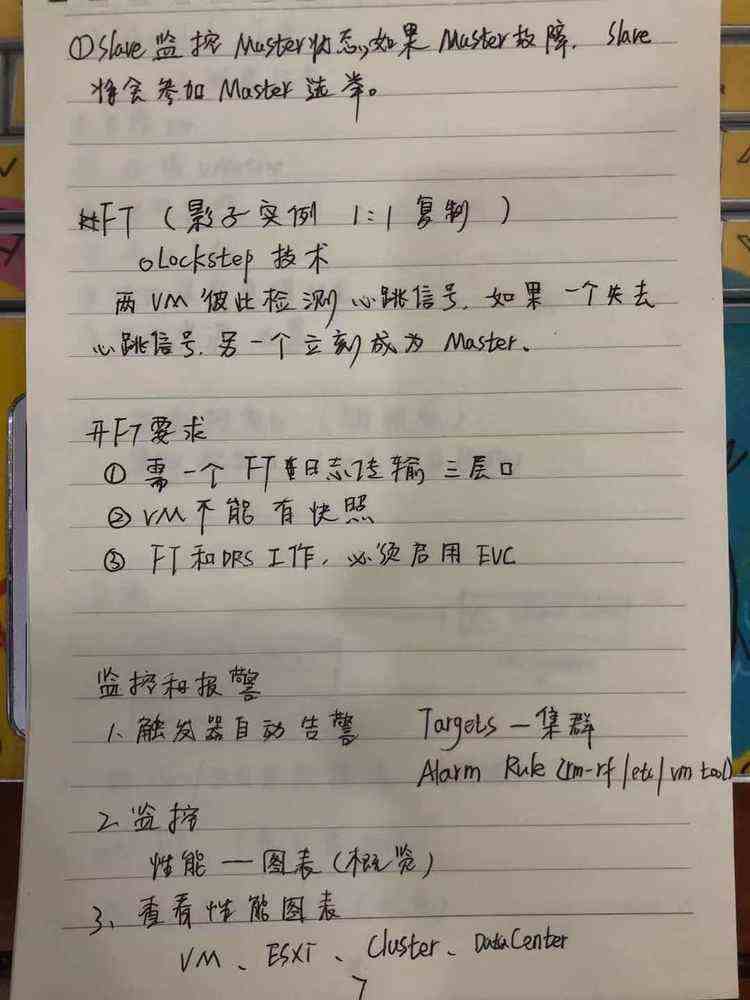 ①Slave 监控 Master状态,如果 Master故障. Slave
将会参加 Master 选举。
FT (影子实例 1:1 复制)
Lockstep 技术
两 VM 彼此检测心跳信号. 如果一个失去
心跳信号. 另一个立刻成为 Master.
开FT要求
① 需一个 FT 日志传输 三层口
② VM不能有快照
③ FT和DRS工作, 必须启用 EVC
监控和报警
1、触发器自动告警 Targets — 集群
Alarm Rule (rm-rf /etc/vm tool)
2、监控
性能 — 图表 (概览)
3、查看性能图表
VM、ESXI、Cluster、DataCenter
7